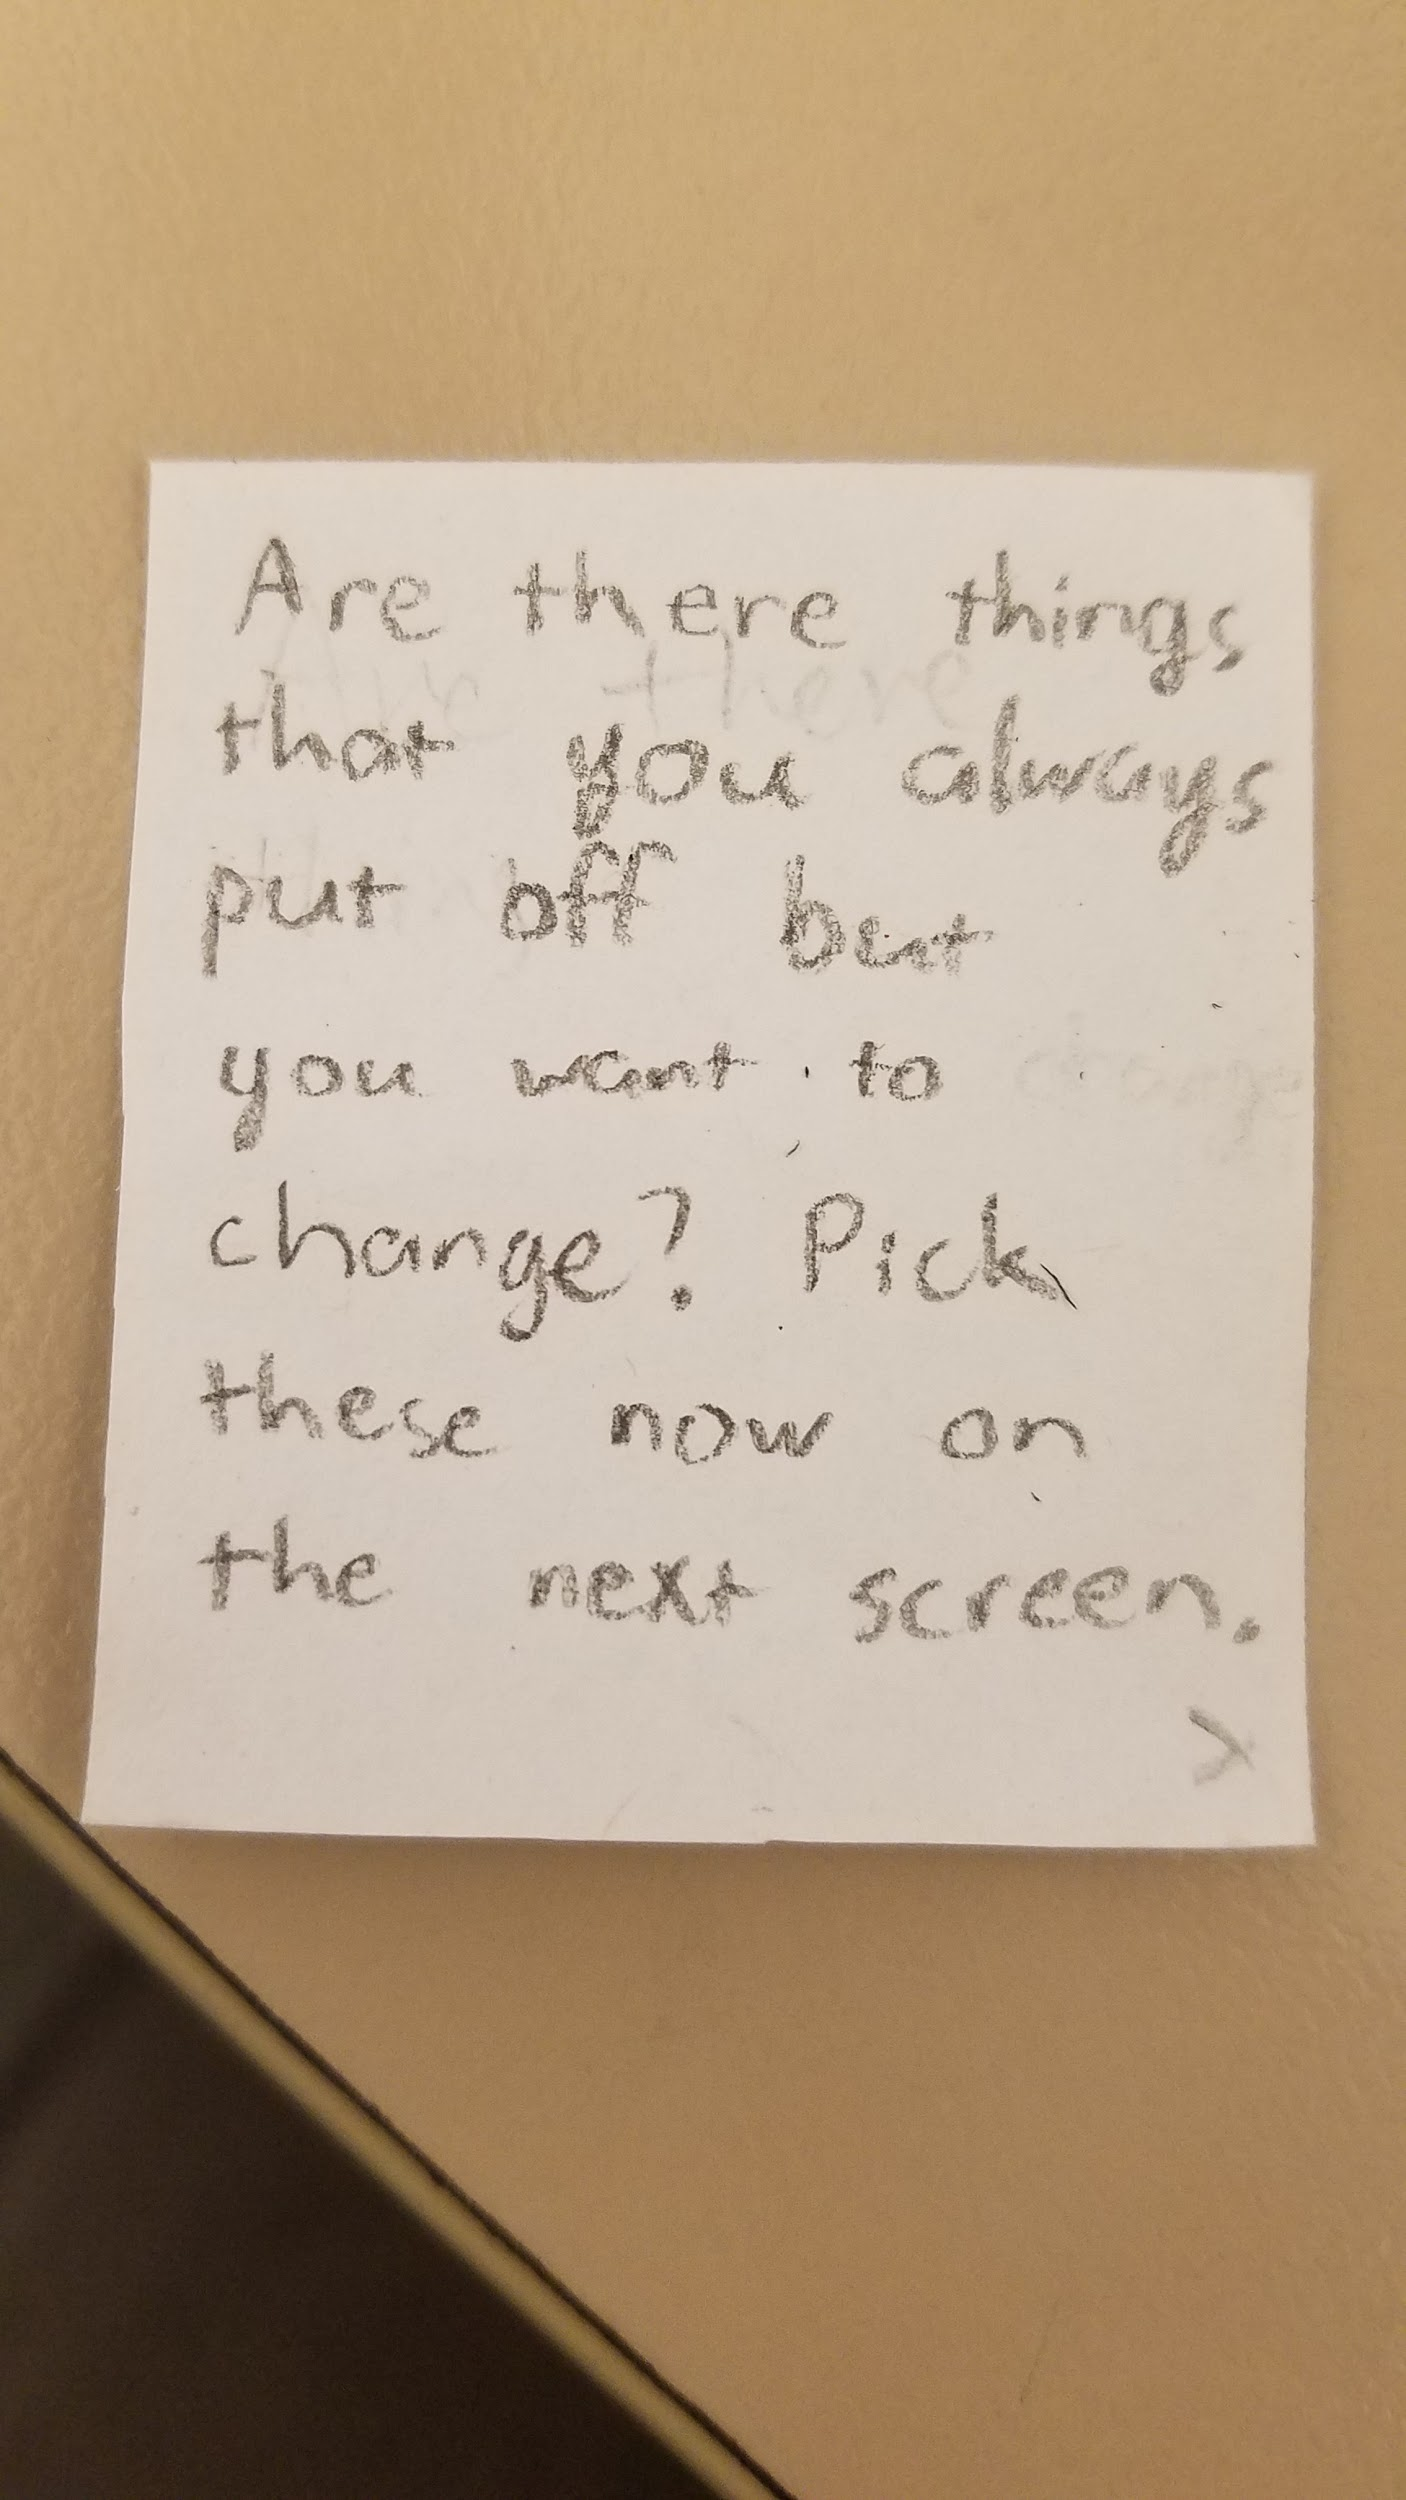 Are there things
that you always
put off but
you want to
change? Pick
these now on
the next screen.
>